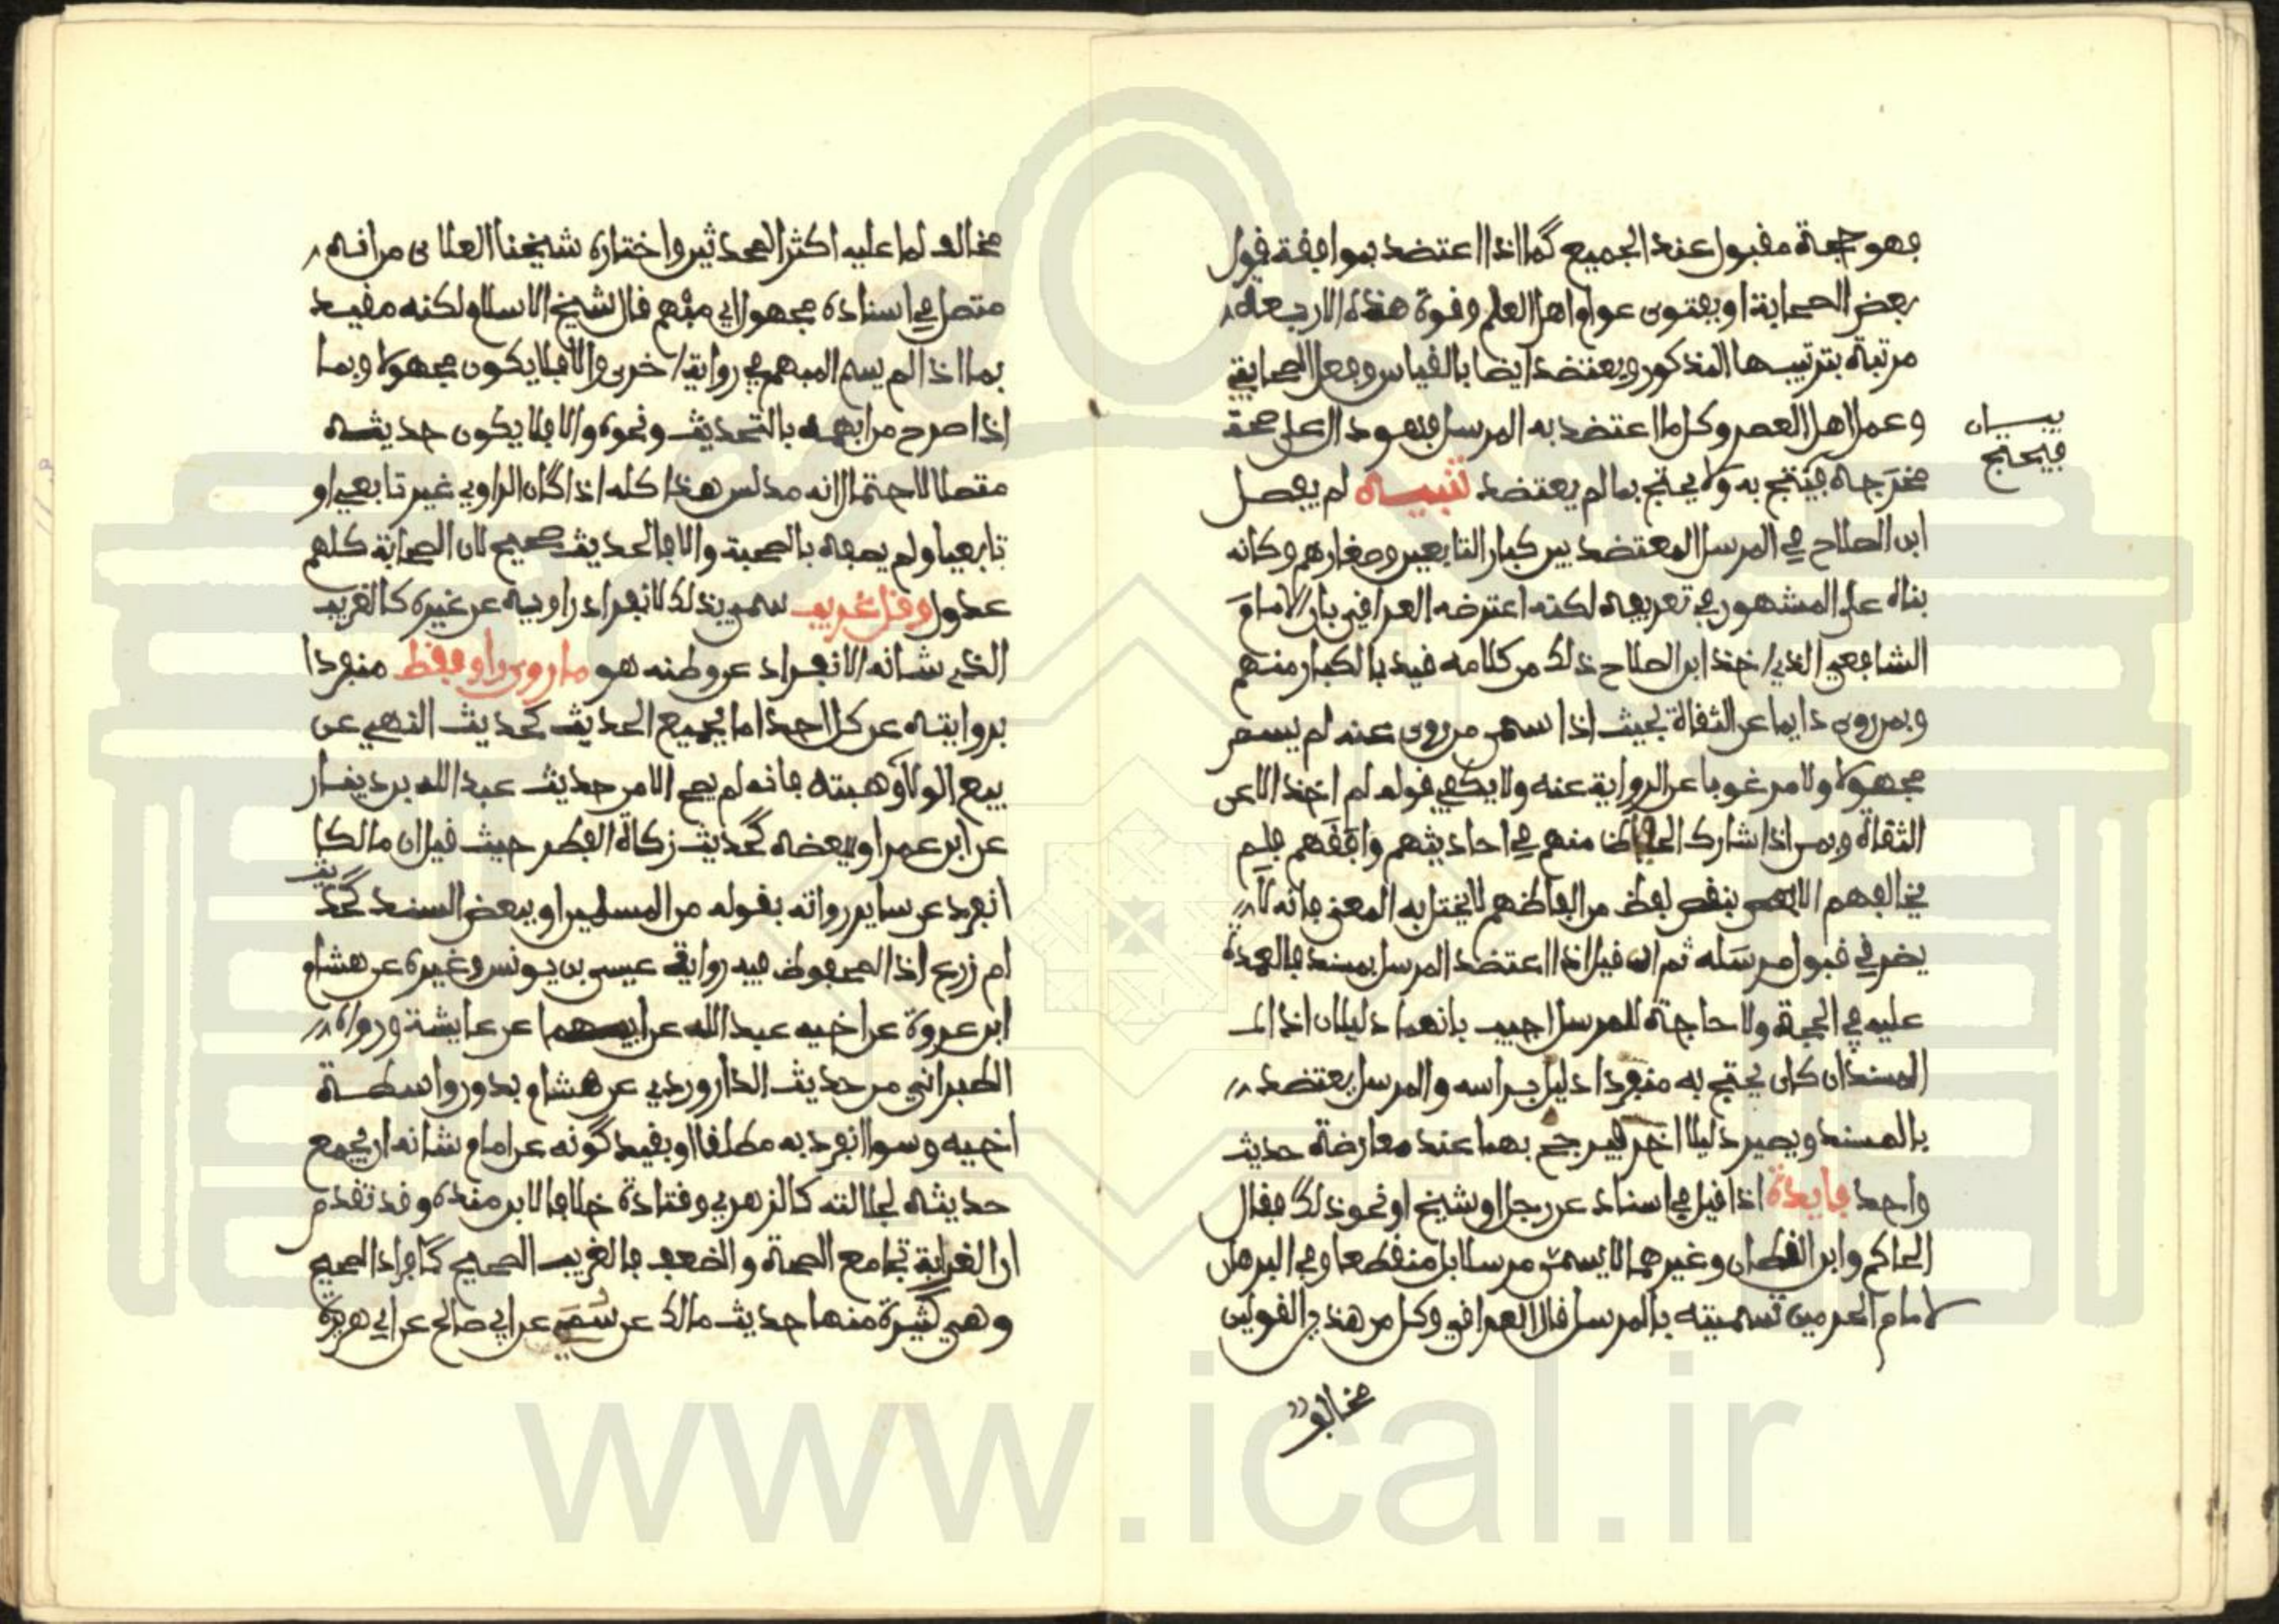 فهو حجة مقبول عند الجميع كما اذا اعتضد بموافقة قول
بعض الصحابة او بفتوى عوام اهل العلم وقوة هذه الاربعة
مرتبة بترتيبها المذكور ويعتضد ايضا بالقياس وفعل الصحابي
وعمل اهل العصر وكل ما اعتضد به المرسل فهو دال على صحة
بيان
فيحتج
مخرجه فيحتج به ولا يحتج بما لم يعتضد تنبيه لم يفصل
ابن الصلاح في المرسل المعتضد بين كبار التابعين وصغارهم وكانه
بناه على المشهور في تعريفه لكنه اعترضه العراقي بان الامام
الشافعي الذي اخذ ابن الصلاح ذلك من كلامه قيد بالكبار منهم
وبمن روى دايما عن الثقاة بحيث اذا سمى من روى عنه لم يسم
مجهولا ولا مرغوبا عن الرواية عنه ولا يكفي قوله لم اخذ الا عن
الثقاة وبمن اذا شارك الحفاظ منهم في احاديثهم وافقهم فلم
يخالفهم الا بنقص لفظ من الفاظهم لا يختل به المعنى فانه لا
يضر في قبول مرسله ثم ان قيل اذا اعتضد المرسل بمسند فالعمدة
عليه في الحجة ولا حاجة للمرسل اجيب بانهما دليلان اذ الـ
المسند ان كان يحتج به منفردا دليل براسه والمرسل يعتضد
بالمسند ويصير دليلا اخر فيرجح بهما عند معارضة حديث
واحد فايدة اذا قيل في اسناد عن رجل او شيخ او نحو ذلك فقال
الحاكم وابن القطان وغيرهما لا يسمى مرسلا بل منقطعا وفي البرهان
لامام الحرمين تسميته بالمرسل قال العراقي وكل من هذين القولين
مخالف
مخالف لما عليه اكثر المحدثين واختاره شيخنا العلائى من انه
متصل في اسناده مجهول اي مبهم قال شيخ الاسلام ولكنه مقيد
بما اذا لم يسم المبهم في رواية اخرى والا فلا يكون مجهولا وبما
اذا صرح من ابهمه بالتحديث ونحوه والا فلا يكون حديثه
متصلا لاحتمال انه مدلس هذا كله اذا كان الراوي غير تابعي او
تابعيا ولم يصفه بالصحبة والا فالحديث صحيح لان الصحابة كلهم
عدول وقل غريب سمي بذلك لانفراد راويه عن غيره كالغريب
الذي شانه الانفراد عن وطنه هو ما روى راو فقط منفردا
بروايته عن كل احد اما بجميع الحديث كحديث النهي عن
بيع الولا وهبته فانه لم يصح الا من حديث عبد الله بن دينار
عن ابن عمر او ببعضه كحديث زكاة الفطر حيث قيل ان مالكا
انفرد عن ساير رواته بقوله من المسلمين او ببعض السند كحديث
ام زرع اذ المحفوظ فيه رواية عيسى بن يونس وغيره عن هشام
ابن عروة عن اخيه عبد الله عن ابيهما عن عايشة ورواه
الطبراني من حديث الداروردي عن هشام بدون واسطة
اخيه وسوا انفرد به مطلقا او بقيد كونه عن امام شانه ان يجمع
حديثه لجلالته كالزهري وقتادة خلافا لابن منده وقد تقدم
ان الغرابة تجامع الصحة والضعف فالغريب الصحيح كافراد الصحيح
وهي كثيرة منها حديث مالك عن سمي عن ابي صالح عن ابي هريرة
www.ical.ir